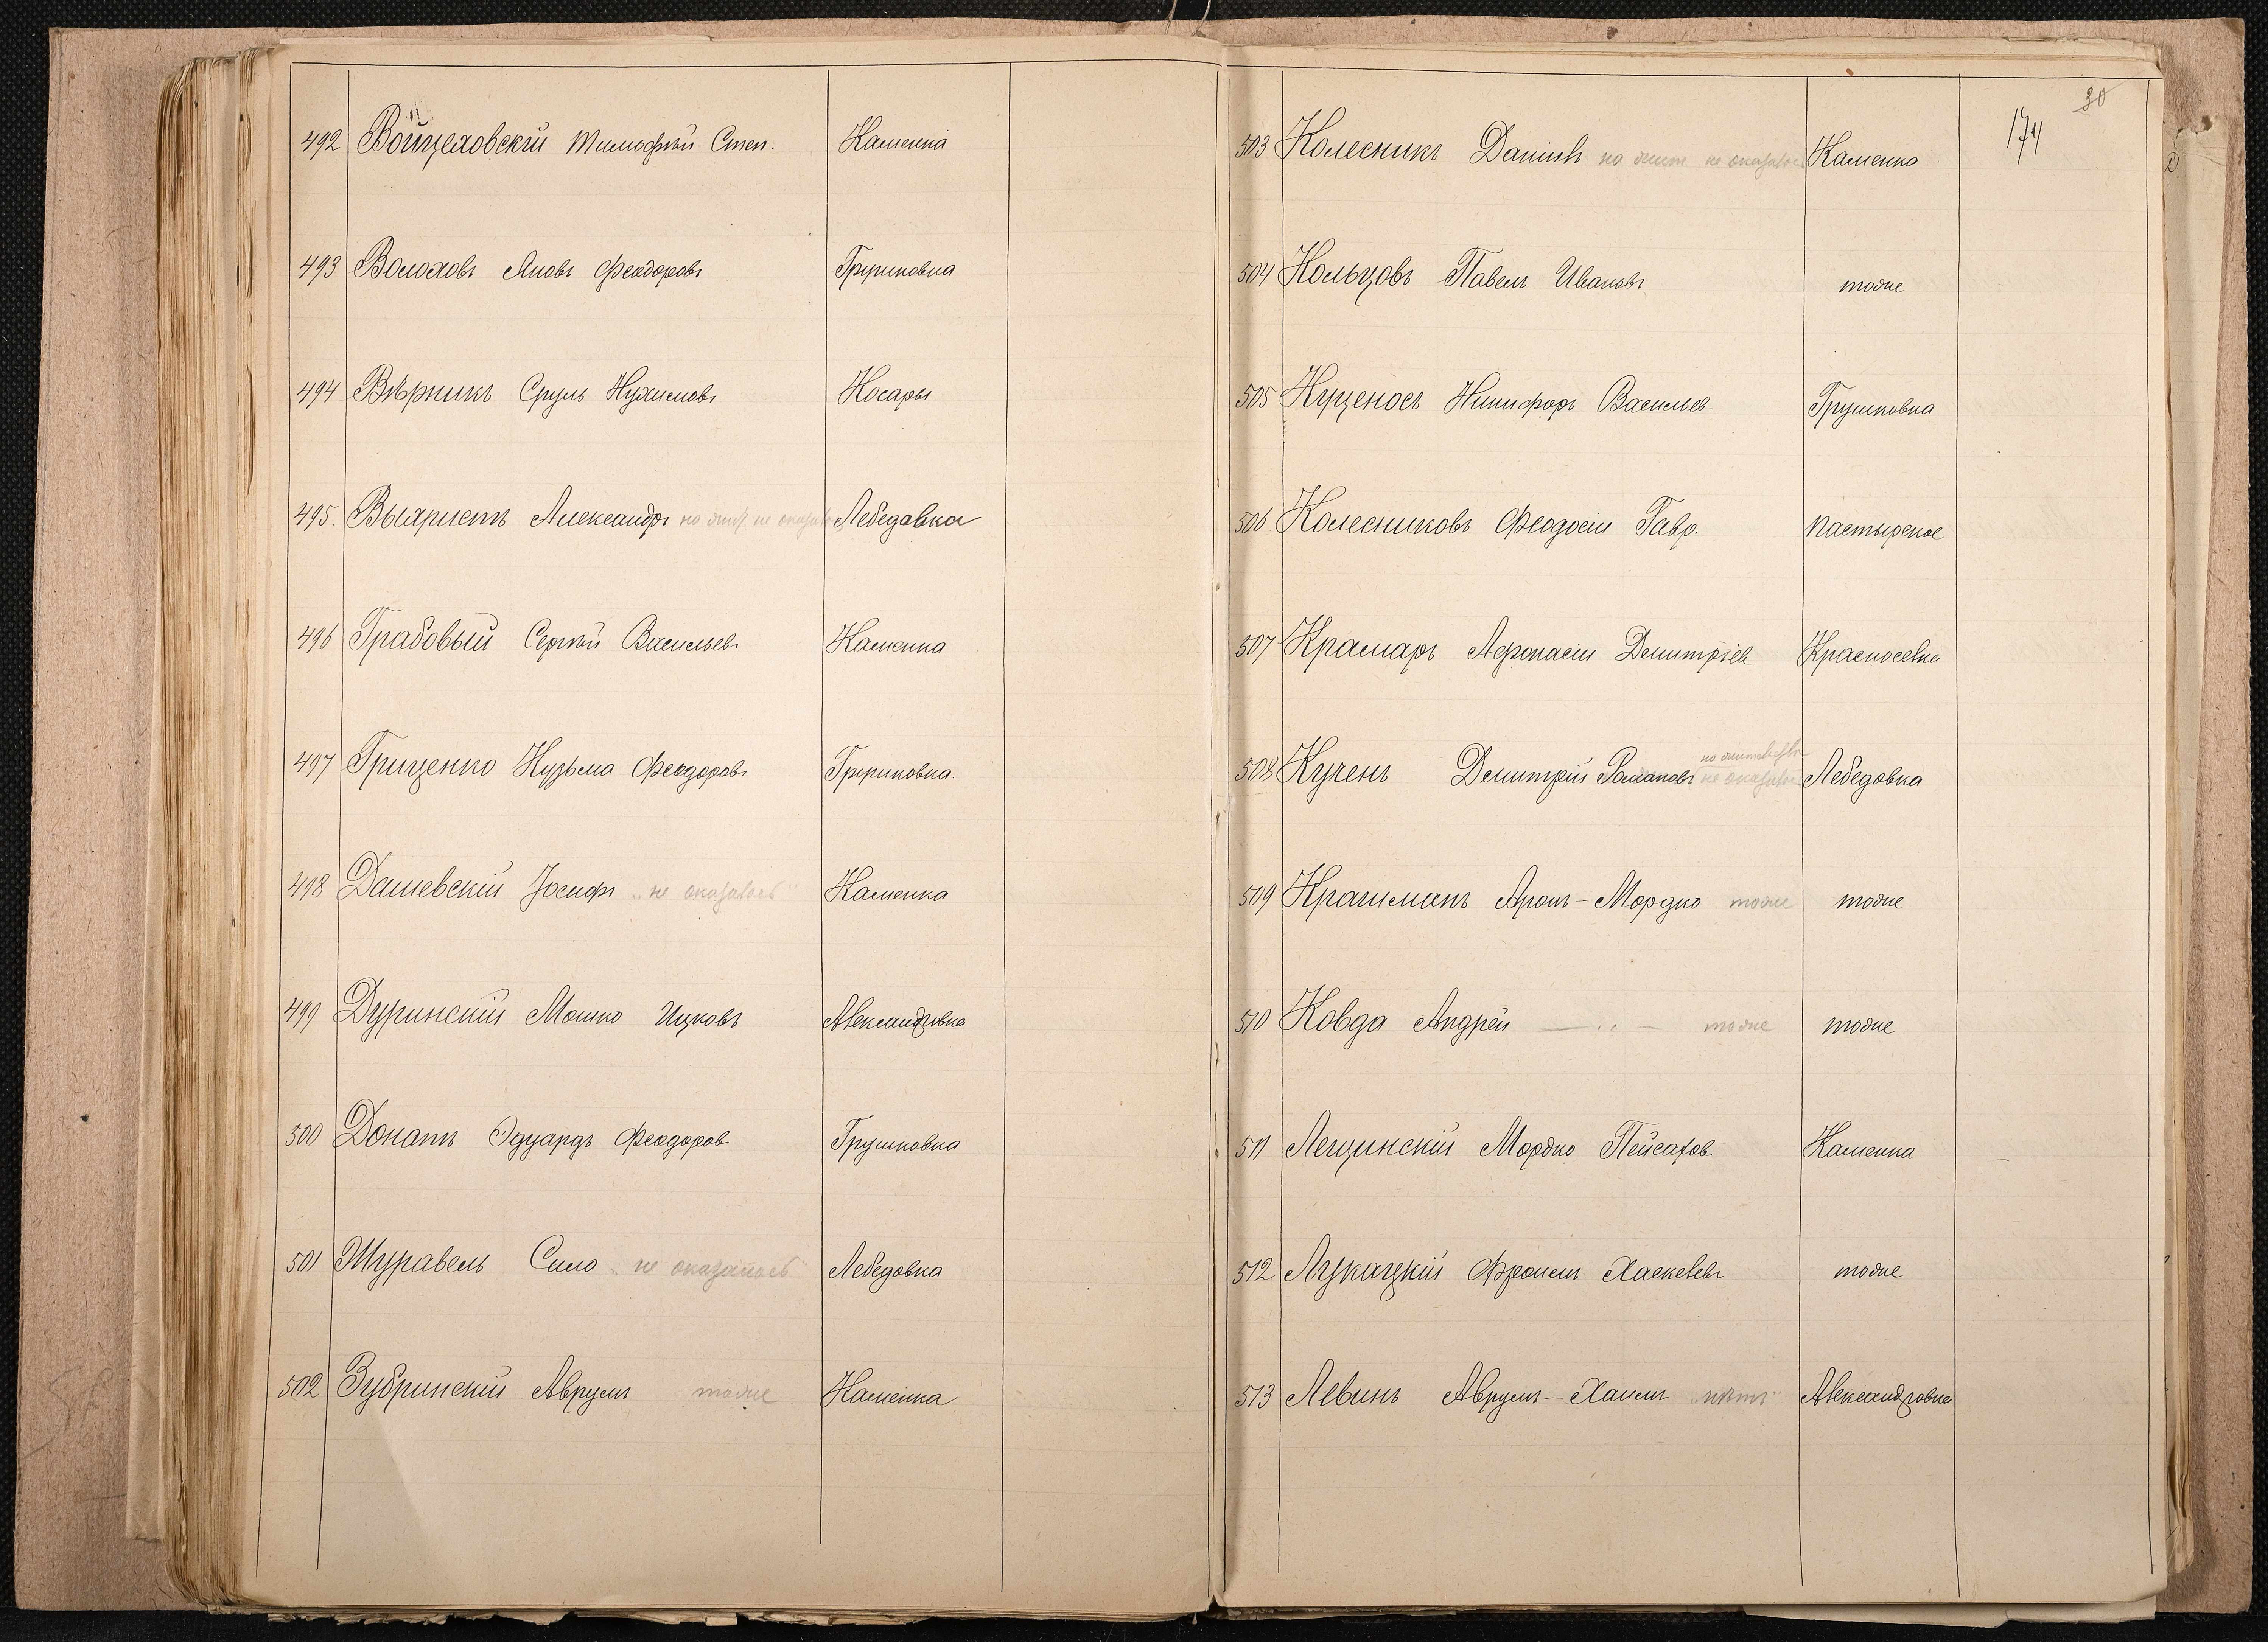 492 Войцеховскій Тимофѣй Степ. Каменка
493 Волоховъ Яковъ Феодоровъ Грушковка
494 Вѣрникъ Сруль Нухимовъ Косары
495. Выхристъ Александръ на жит. не оказалось Лебедовка
496 Грабовый Сергѣй Васильевъ Каменка
497 Гриценко Кузьма Феодоровъ Грушковка.
498 Дашевскій Іосифъ „не оказалось" Каменка
499 Дуринскій Мошко Ицковъ Александровка
500 Донатъ Эдуардъ Феодоров Грушковка
501 Журавель Сила „не оказалось" Лебедовка
502 Зубринскій Аврумъ тоже Каменка
30
174
503 Колесникъ Даніилъ на жит. не оказалось Каменка
504 Кольцовъ Павелъ Ивановъ тоже
505 Куценосъ Никифоръ Васильев Грушковка
506 Колесниковъ Феодосій Гавр. Пастырское
507 Крамаръ Афанасій Дмитріев Красноселка
на жительствѣ
508 Кучеръ Дмитрій Романовъ не оказалось Лебедовка
509 Крахманъ Аронъ-Мордко тоже тоже
510 Ковда Андрей — „ — тоже тоже
511 Лещинскій Мордко Пейсахов Каменка
512 Лукацкій Фроимъ Хаскелевъ тоже
513 Левинъ Аврумъ-Хаимъ „нѣтъ" Александровка